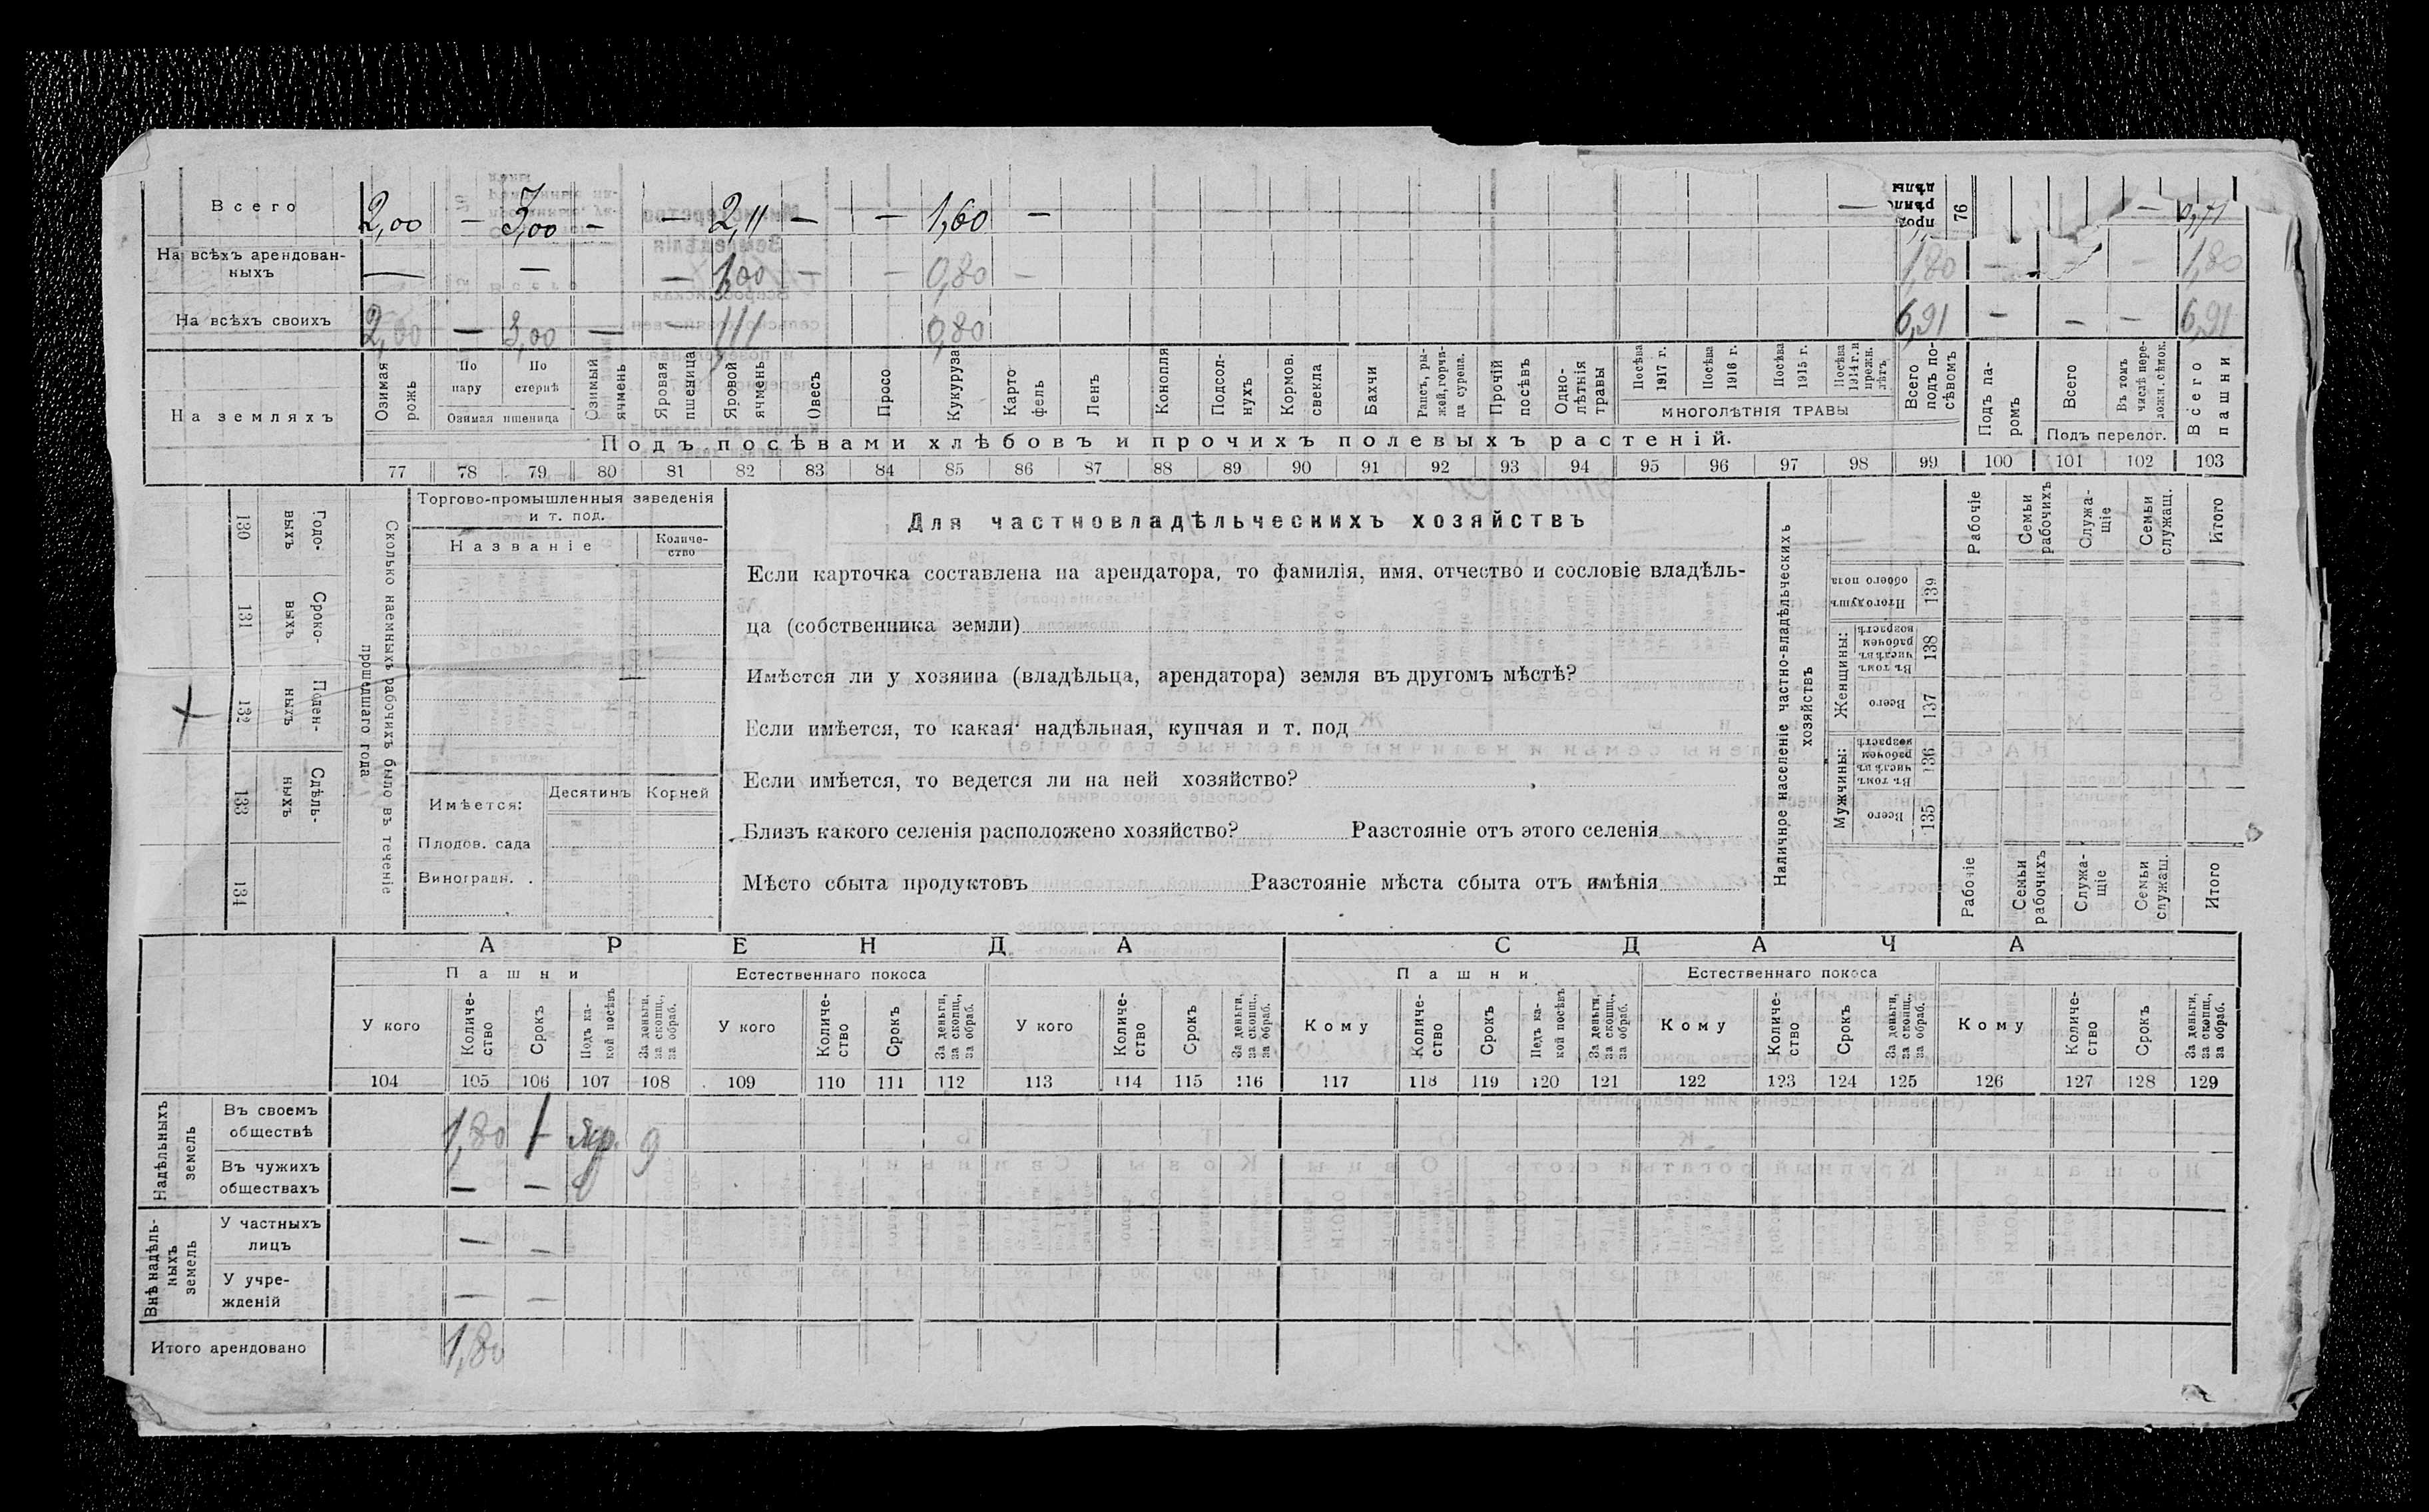 Всего 2,00 — 3,00 — — 2,11 — — 1,60 — — 76 —
На всѣхъ арендован-
ныхъ — — — 1,00 — — 0,80 — 1,80 — — — 1,80
На всѣхъ своихъ 2,00 — 3,00 — — 1,11 0,80 6,91 — — — 6,91
На земляхъ
Озимая рожь
По пару
По стернѣ
Озимая пшеница
Озимый ячмень
Яровая пшеница
Яровой ячмень
Овесъ
Просо
Кукуруза
Карто-
фель
Ленъ
Конопля
Подсол-
нухъ
Кормов.
свекла
Бахчи
Рапсъ, ры-
жей, горчи-
ца сурепа.
Прочій
посѣвъ
Одно-
лѣтнія
травы
Посѣва
1917 г.
Посѣва
1916 г.
Посѣва
1915 г.
Посѣва
1914 г. и
прежн.
лѣтъ
МНОГОЛѢТНІЯ ТРАВЫ
Всего
подъ по-
сѣвомъ
Подъ па-
ромъ
Всего
Въ томъ
числѣ пере-
ложн. сѣнок.
Подъ перелог.
Всего
пашни
Подъ посѣвами хлѣбовъ и прочихъ полевыхъ растеній.
77 78 79 80 81 82 83 84 85 86 87 88 89 90 91 92 93 94 95 96 97 98 99 100 101 102 103
130 Годо-
выхъ
131 Сроко-
выхъ
132 Поден-
ныхъ
133 Сдѣль-
ныхъ
134
Сколько наемныхъ рабочихъ было въ теченіе
прошедшаго года
Торгово-промышленныя заведенія
и т. под.
Названіе
Количе-
ство
Имѣется:
Десятинъ Корней
Плодов. сада
Виноградн.
Для частновладѣльческихъ хозяйствъ
Если карточка составлена на арендатора, то фамилія, имя, отчество и сословіе владѣль-
ца (собственника земли)
Имѣется ли у хозяина (владѣльца, арендатора) земля въ другомъ мѣстѣ?
Если имѣется, то какая: надѣльная, купчая и т. под
Если имѣется, то ведется ли на ней хозяйство?
Близъ какого селенія расположено хозяйство? Разстояніе отъ этого селенія
Мѣсто сбыта продуктовъ Разстояніе мѣста сбыта отъ имѣнія
Наличное населеніе частно-владѣльческихъ
хозяйствъ
Рабочіе
Семьи
рабочихъ
Служа-
щіе
Семьи
служащ.
Итого
Итого душъ
обоего пола
139
Женщины:
Въ томъ
числѣ въ
рабочемъ
возрастѣ
138
Всего
137
Мужчины:
Въ томъ
числѣ въ
рабочемъ
возрастѣ
136
Всего
135
Рабочіе
Семьи
рабочихъ
Служа-
щіе
Семьи
служащ.
Итого
АРЕНДА СДАЧА
Пашни Естественнаго покоса Пашни Естественнаго покоса
У кого
Количе-
ство
Срокъ
Подъ ка-
кой посѣвъ
За деньги,
за скопщ.,
за обраб.
У кого
Количе-
ство
Срокъ
За деньги,
за скопщ.,
за обраб.
У кого
Количе-
ство
Срокъ
За деньги,
за скопщ.,
за обраб.
Кому
Количе-
ство
Срокъ
Подъ ка-
кой посѣвъ
За деньги,
за скопщ.,
за обраб.
Кому
Количе-
ство
Срокъ
За деньги,
за скопщ.,
за обраб.
Кому
Количе-
ство
Срокъ
За деньги,
за скопщ.,
за обраб.
104 105 106 107 108 109 110 111 112 113 114 115 116 117 118 119 120 121 122 123 124 125 126 127 128 129
Надѣльныхъ
земель
Въ своемъ
обществѣ 1,80 1 яр. 9
Въ чужихъ
обществахъ — —
Внѣ надѣль-
ныхъ
земель
У частныхъ
лицъ — —
У учре-
жденій — —
Итого арендовано 1,80